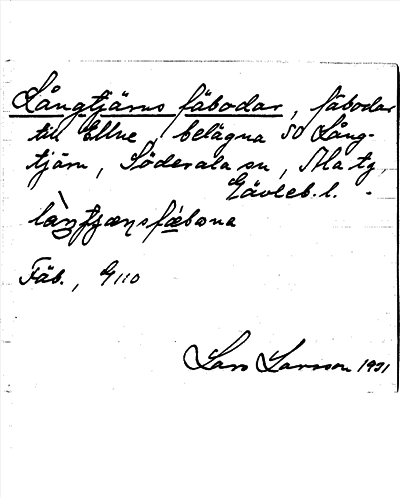 Långtjärns fäbodar, fäbodar
till Ellne, belägna SO Lång-
tjärn, Söderala sn, Ala tg,
Gävleb. l.
Fäb., G110
Lars Larsson 1931